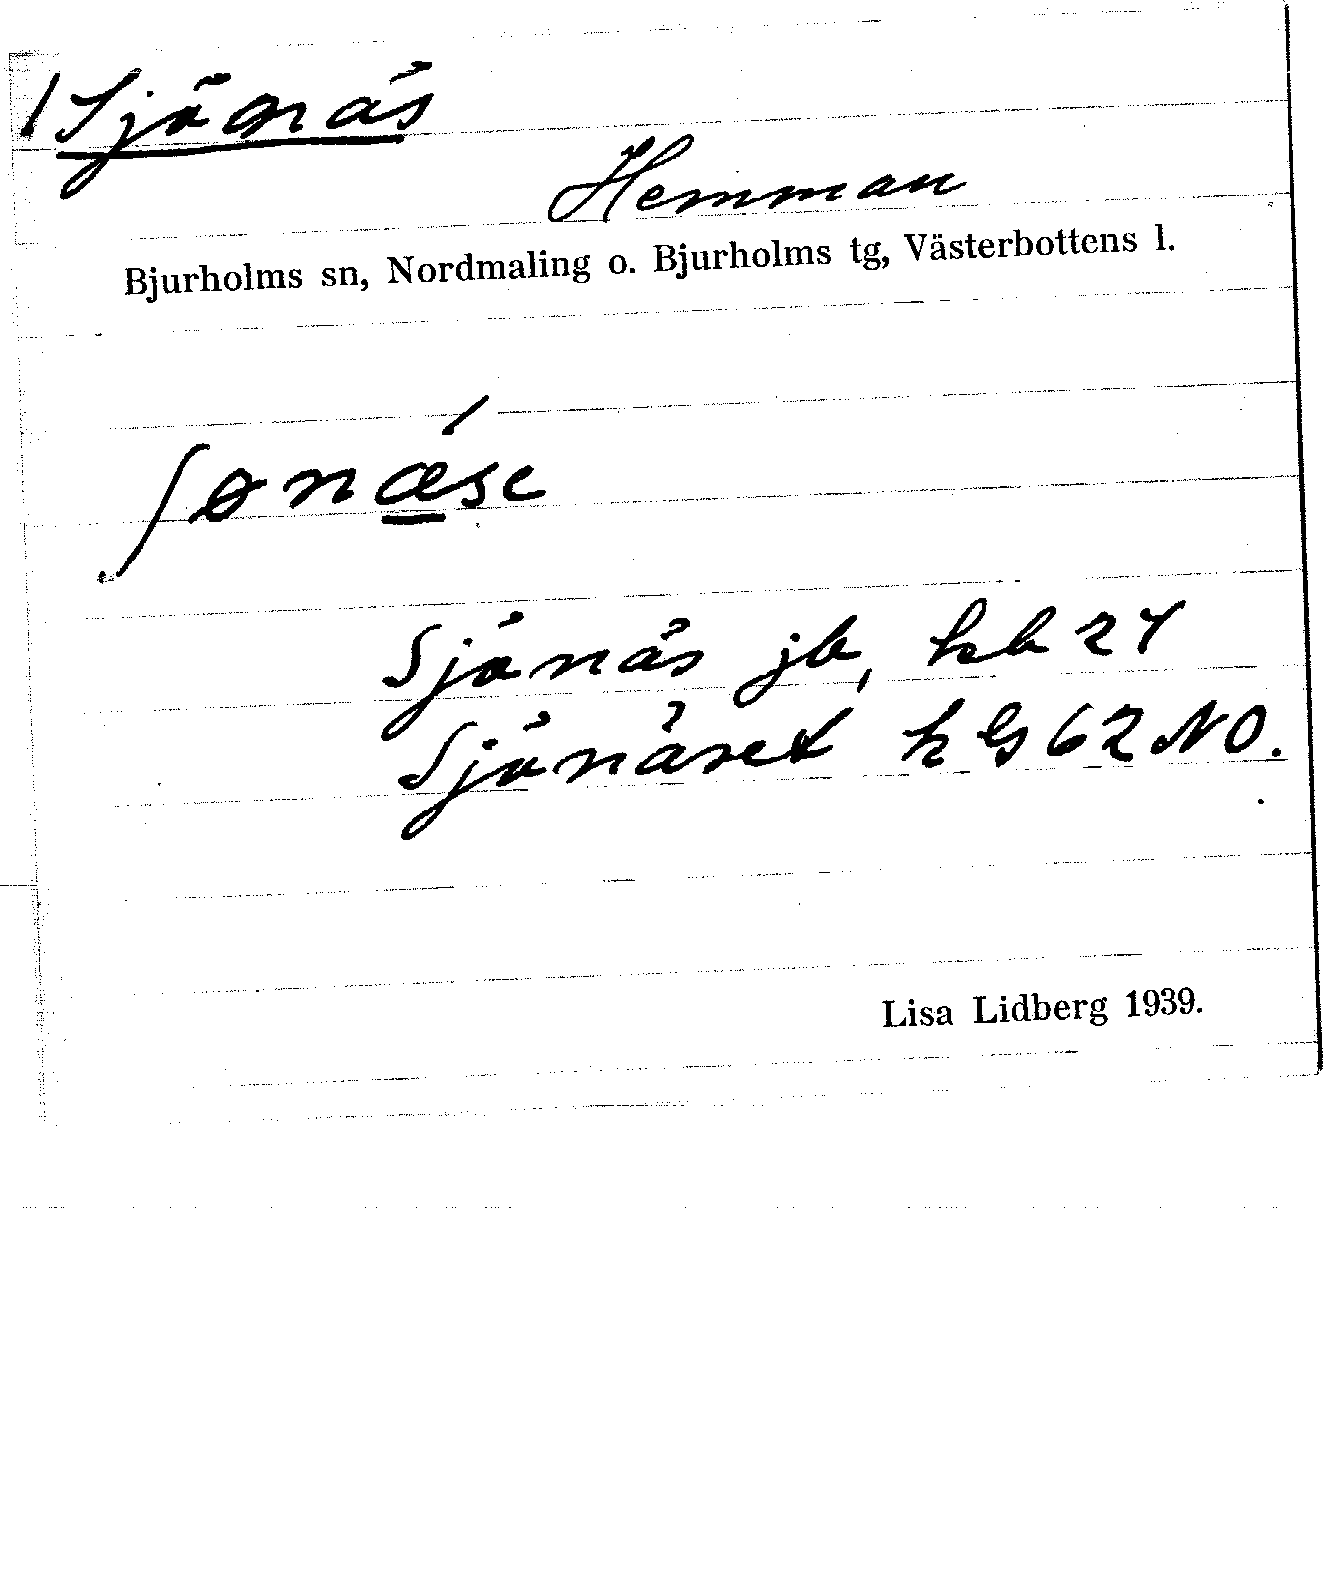 / Sjönäs
Hemman
Bjurholms sn, Nordmaling o. Bjurholms tg, Västerbottens l.
ʃønǽ̲se
Sjönäs jb, hb 24
Sjönäset k G 62 NO.
Lisa Lidberg 1939.